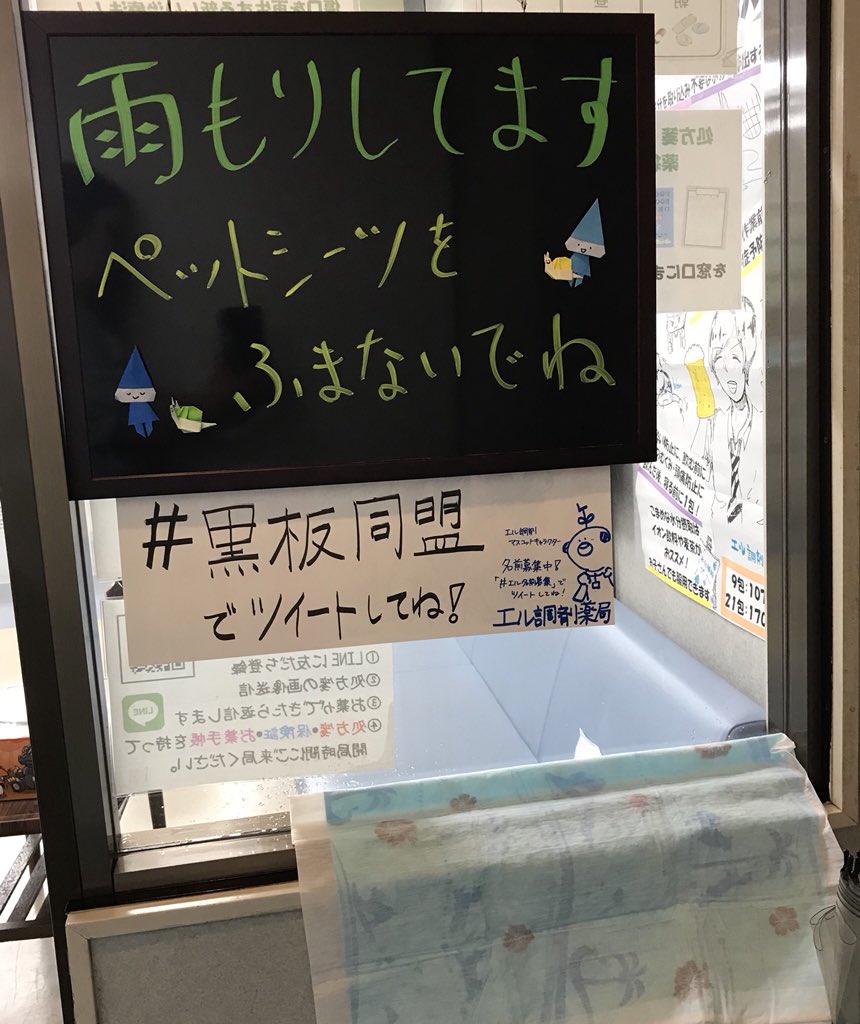 雨もりしてます
ペットシーツを
ふまないでね
#黒板同盟
でツイートしてね!
エル調剤
マスコットキャラクター
名前募集中!
「#エル名前募集」で
ツイートしてね!
エル調剤薬局
①LINEに友だち登録
②処方箋の画像送信
③お薬ができたら返信します
④処方箋・保険証・お薬手帳を持って
開局時間にご来局ください。
LINE
処方箋
を窓口に
イオン飲料や薬局が
おススメ!
お子さんでも服用できます
9包:107
21包:170